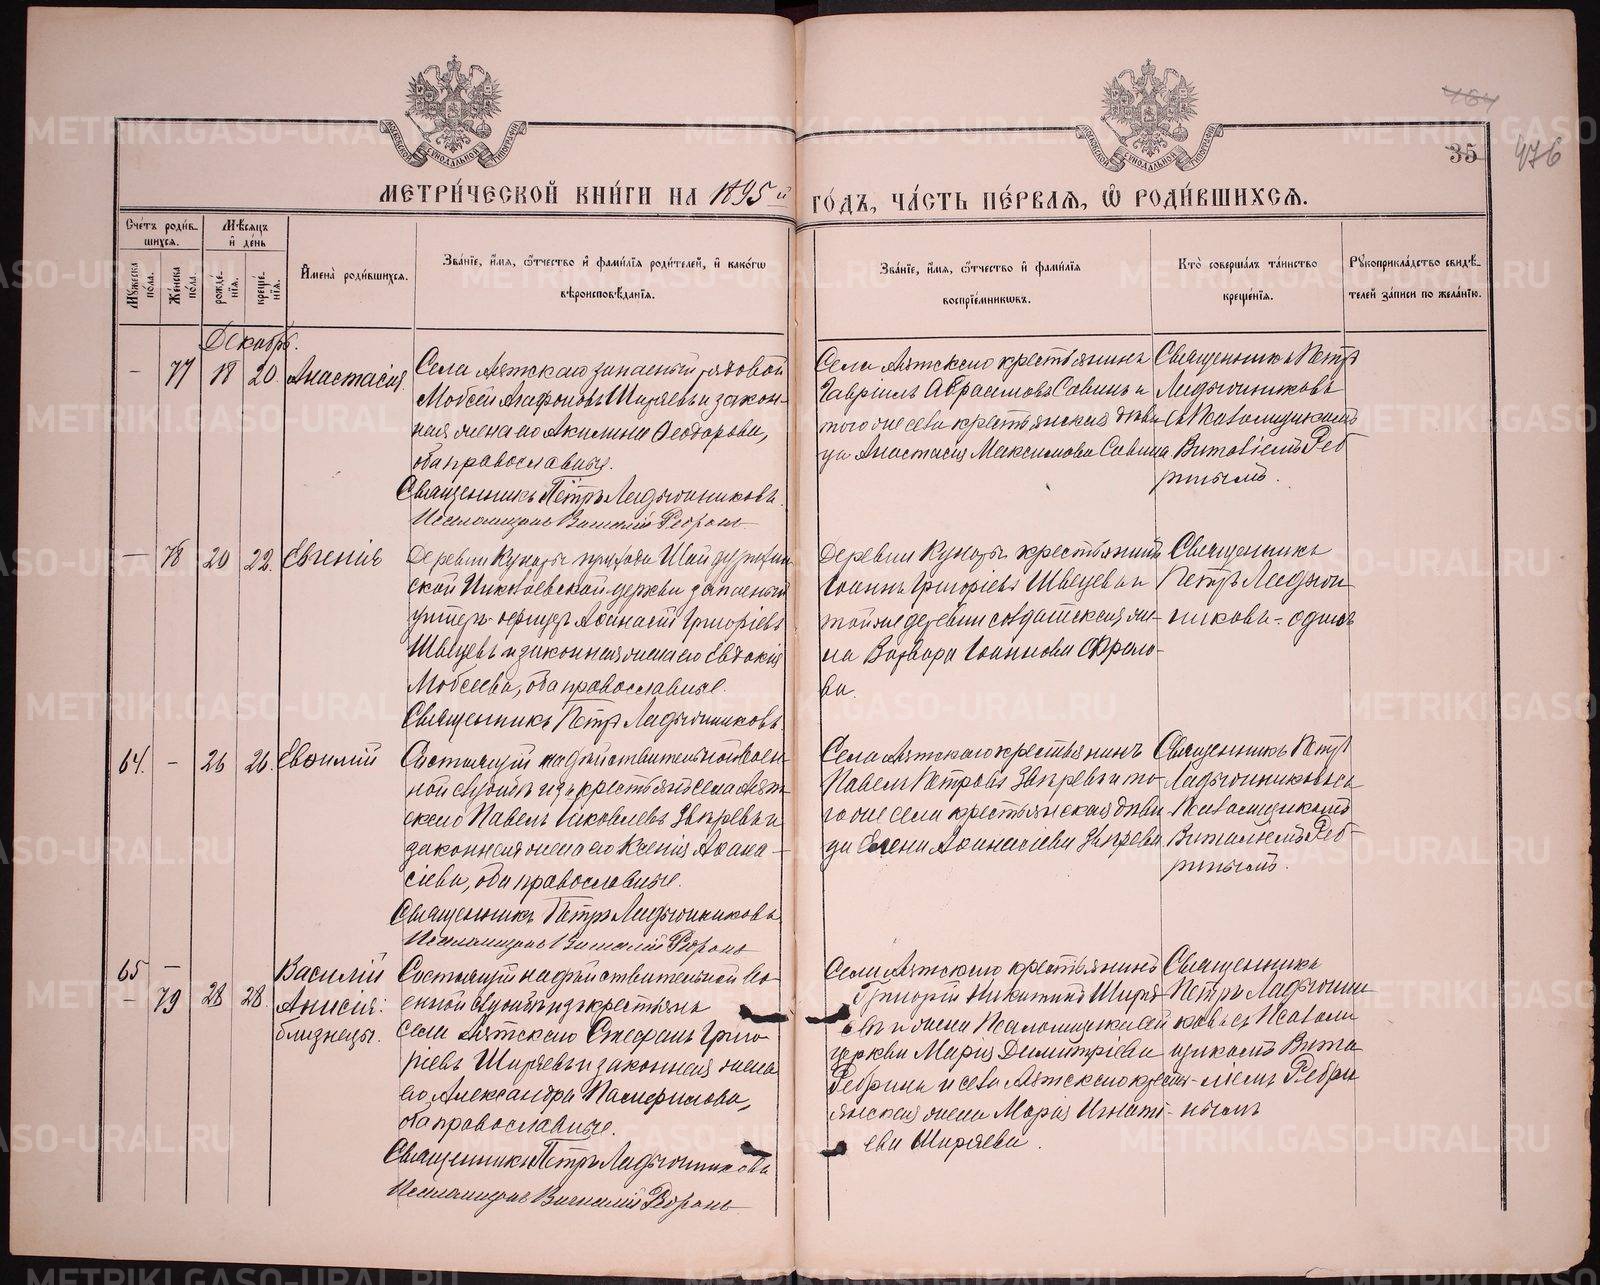 МОСКОВСКОЙ СѴНОДАЛЬНОЙ ТИПОГРАФІИ
МОСКОВСКОЙ СѴНОДАЛЬНОЙ ТИПОГРАФІИ
484
35 476
МЕТРИ́ЧЕСКОЙ КНИ́ГИ НА 1895 й ГО́ДЪ, ЧА́СТЬ ПЕ́РВАѦ, Ѡ҆ РОДИ́ВШИХСѦ.
Сче́тъ роди́в-
шихсѧ.
Мꙋ́жеска по́ла.
Же́нска по́ла.
Мѣ́сѧцъ и҆ де́нь
рожде́нїѧ.
креще́нїѧ.
И҆мена̀ роди́вшихсѧ.
Зва́нїе, и҆́мѧ, ѻ҆́тчество и҆ фами́лїѧ роди́телей, и҆ како́гѡ
вѣроисповѣ́данїѧ.
Зва́нїе, и҆́мѧ, ѻ҆́тчество и҆ фами́лїѧ
воспрїе́мникѡвъ.
Кто̀ соверша́лъ та́инство
креще́нїѧ.
Рꙋкоприкла́дство свидѣ́-
телей за́писи по жела́нїю.
Декабрь.
– 77 18 20 Анастасія.
Села Аятскаго запасный рядовой
Мойсей Агафоновъ Ширяевъ и закон-
ная жена его Акилина Ѳеодорова,
оба православные.
Священникъ Петръ Ладыжниковъ
Псаломщикъ Виталій Ребринъ
Села Аятскаго крестьянинъ
Гавріилъ Абрамовъ Савинъ и
того же села крестьянская дѣви
ца Анастасія Максимова Савина
Священникъ Петръ
Ладыжниковъ
съ Псаломщикомъ
Виталіемъ Реб
ринымъ.
– 78 20 22 Евгенія
Деревни Кунары прихода Шайдурихин
ской Николаевской церкви запасный
унтеръ-офицеръ Аѳанасій Григоріевъ
Швецевъ и законная жена его Евдокія
Мойсеева, оба православные.
Священникъ Петръ Ладыжниковъ
Деревни Кунары крестьянинъ
Іоаннъ Григоріевъ Швецевъ и
той же деревни солдатская же-
на Варвара Іоаннова Фроло-
ва.
Священникъ
Петръ Ладыж
никовъ – одинъ
64. – 26 26. Евѳимій
Состоящій на дѣйствительной воен
ной службѣ изъ крестьянъ села Аят-
скаго Павелъ Іаковлевъ Звѣревъ и
законная жена его Ксенія Аѳана-
сіева, оба православные.
Священникъ Петръ Ладыжниковъ
Псаломщикъ Виталій Ребринъ
Села Аятскаго крестьянинъ
Павелъ Петровъ Звѣревъ и то-
го же села крестьянская дѣви
ца Елена Аѳанасіева Звѣрева
Священникъ Петръ
Ладыжниковъ съ
Псаломщикомъ
Виталіемъ Реб-
ринымъ.
65 – Василій
– 79 28 28 Анисія:
близнецы.
Состоящій на дѣйствительной во-
енной службѣ изъ крестьянъ
села Аятскаго Стефанъ Григо-
ріевъ Ширяевъ и законная жена
его Александра Памфилова,
оба православные.
Священникъ Петръ Ладыжниковъ
Псаломщикъ Виталій Ребринъ
Села Аятскаго крестьянинъ
Григорій Никитинъ Ширя
евъ и жена Псаломщика сей
церкви Марія Димитріева
Ребрина и села Аятскаго крест-
янская жена Марія Игнати-
ева Ширяева.
Священникъ
Петръ Ладыжни
ковъ съ Псалом
щикомъ Вита
ліемъ Ребри
нымъ
METRIKI.GASO-URAL.RU